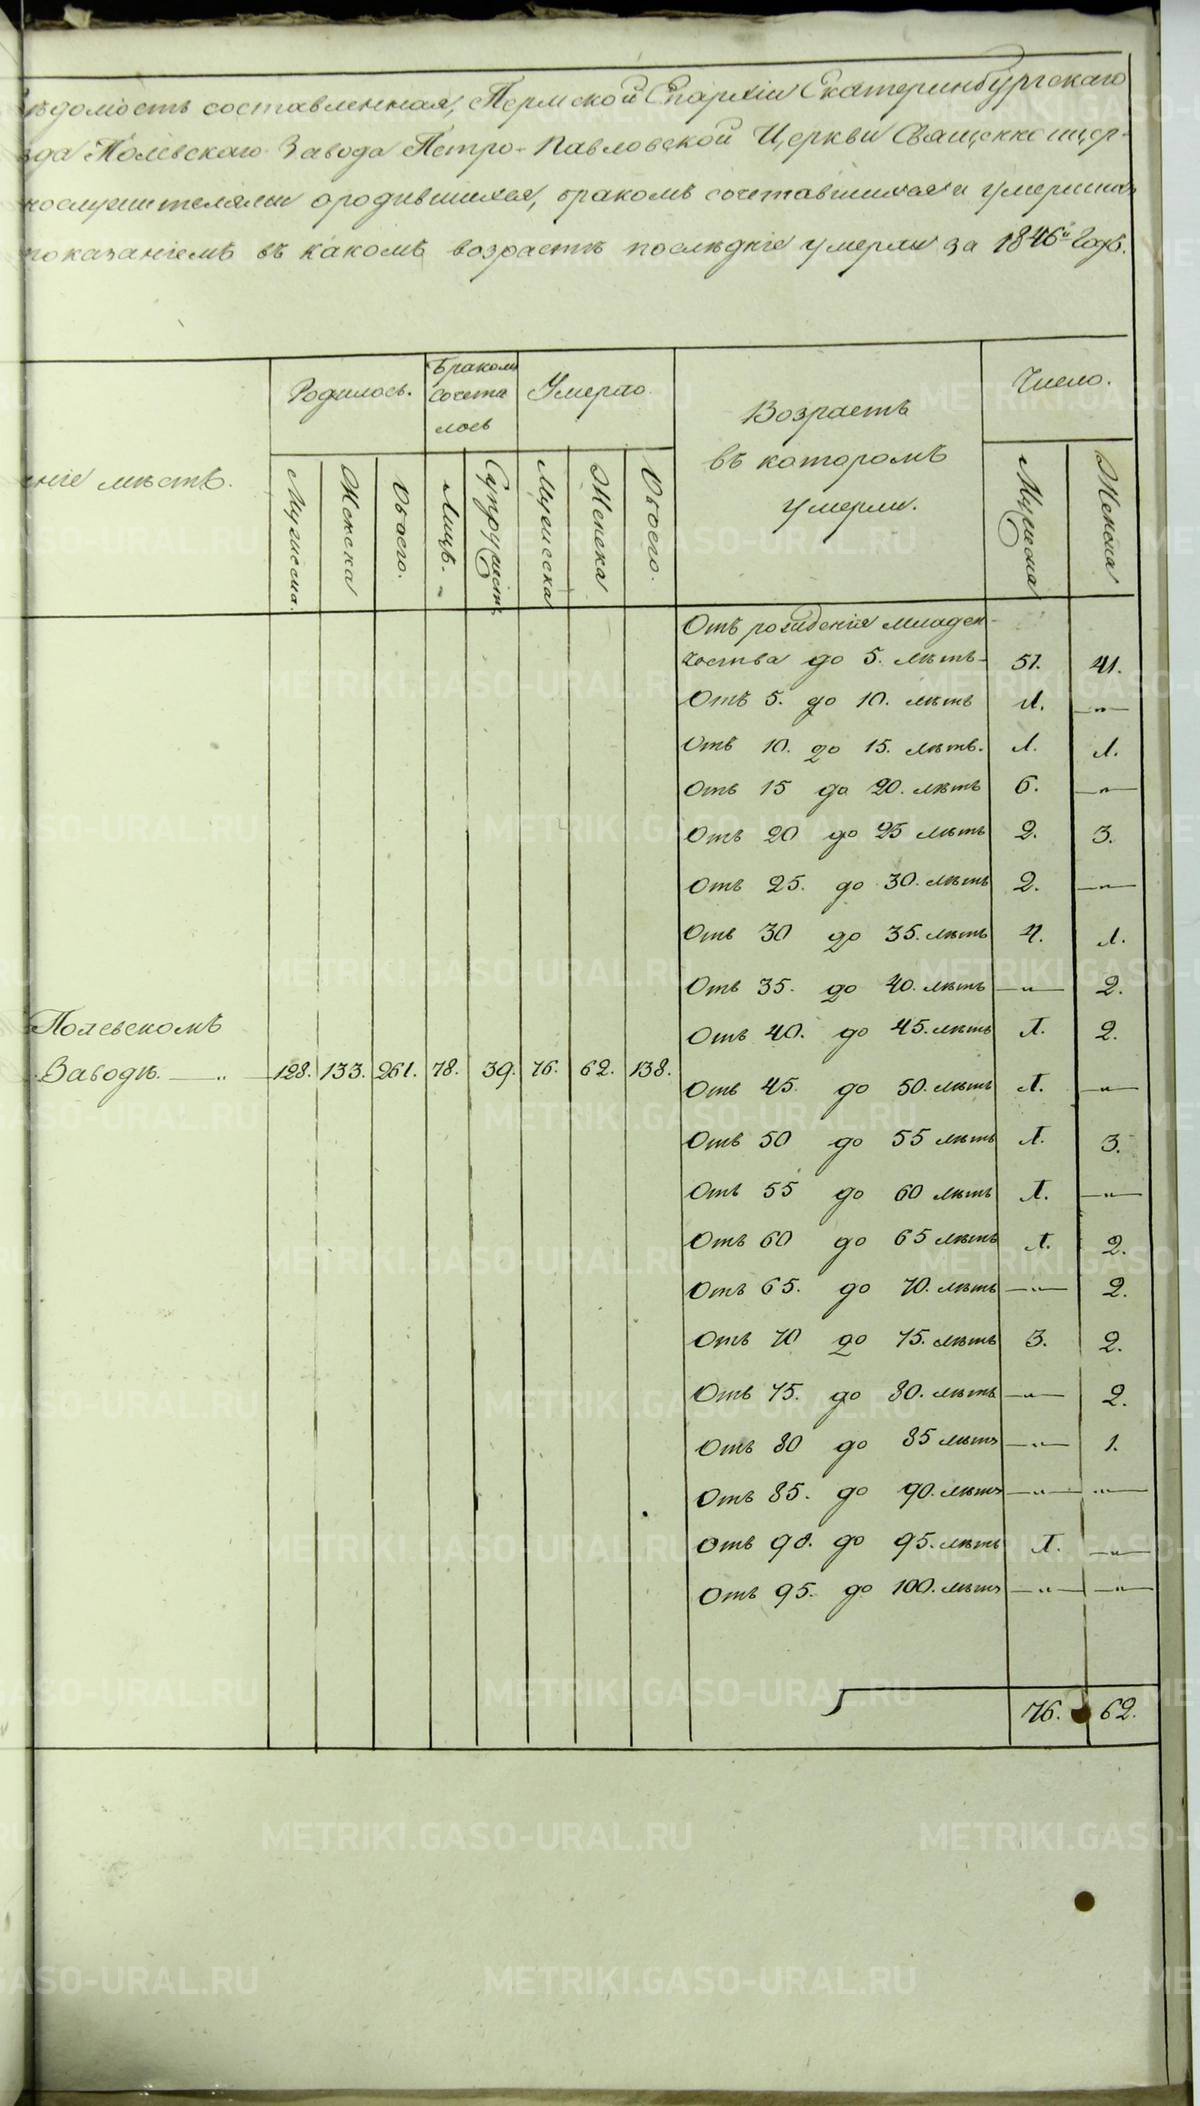 вѣдомость составленная, Пермской Епархіи Екатеринбургскаго
Полевскаго Завода Петро-Павловской Церкви Священно и цер-
о родившихся, бракомъ сочетавшихся и умершихъ
показаніемъ въ какомъ возрастѣ послѣдніе умерли за 1846й Годъ.
Родилось. Бракомъ сочета лось Умерло. Возрастъ въ которомъ умерли. Число.
мѣстъ. Мужеска. Женска Обоего. Лицъ. Супружествъ Мужеска Женска Обоего. Мужска Женска
Отъ рожденія младен-
чества до 5. лѣтъ 51. 41.
Отъ 5. до 10. лѣтъ 1. —"—
Отъ 10. до 15. лѣтъ. 1. 1.
Отъ 15 до 20. лѣтъ 6. —"—
Отъ 20 до 25 лѣтъ 2. 3.
Отъ 25. до 30. лѣтъ 2. —"—
Отъ 30 до 35. лѣтъ 4. 1.
Отъ 35. до 40. лѣтъ —"— 2.
Отъ 40. до 45. лѣтъ 1. 2.
Полевскомъ
Заводѣ. — „ 128. 133. 261. 78. 39. 76. 62. 138.
Отъ 45. до 50. лѣтъ 1. —"—
Отъ 50 до 55 лѣтъ 1. 3.
Отъ 55 до 60 лѣтъ 1. —"—
Отъ 60 до 65 лѣтъ 1. 2.
Отъ 65. до 70. лѣтъ —"— 2.
Отъ 70 до 75. лѣтъ 3. 2.
Отъ 75. до 80. лѣтъ —"— 2.
Отъ 80 до 85 лѣтъ —"— 1.
Отъ 85. до 90. лѣтъ —"— —"—
Отъ 90. до 95. лѣтъ 1. —"—
Отъ 95. до 100. лѣтъ —"— —"—
76. 62.
METRIKI.GASO-URAL.RU